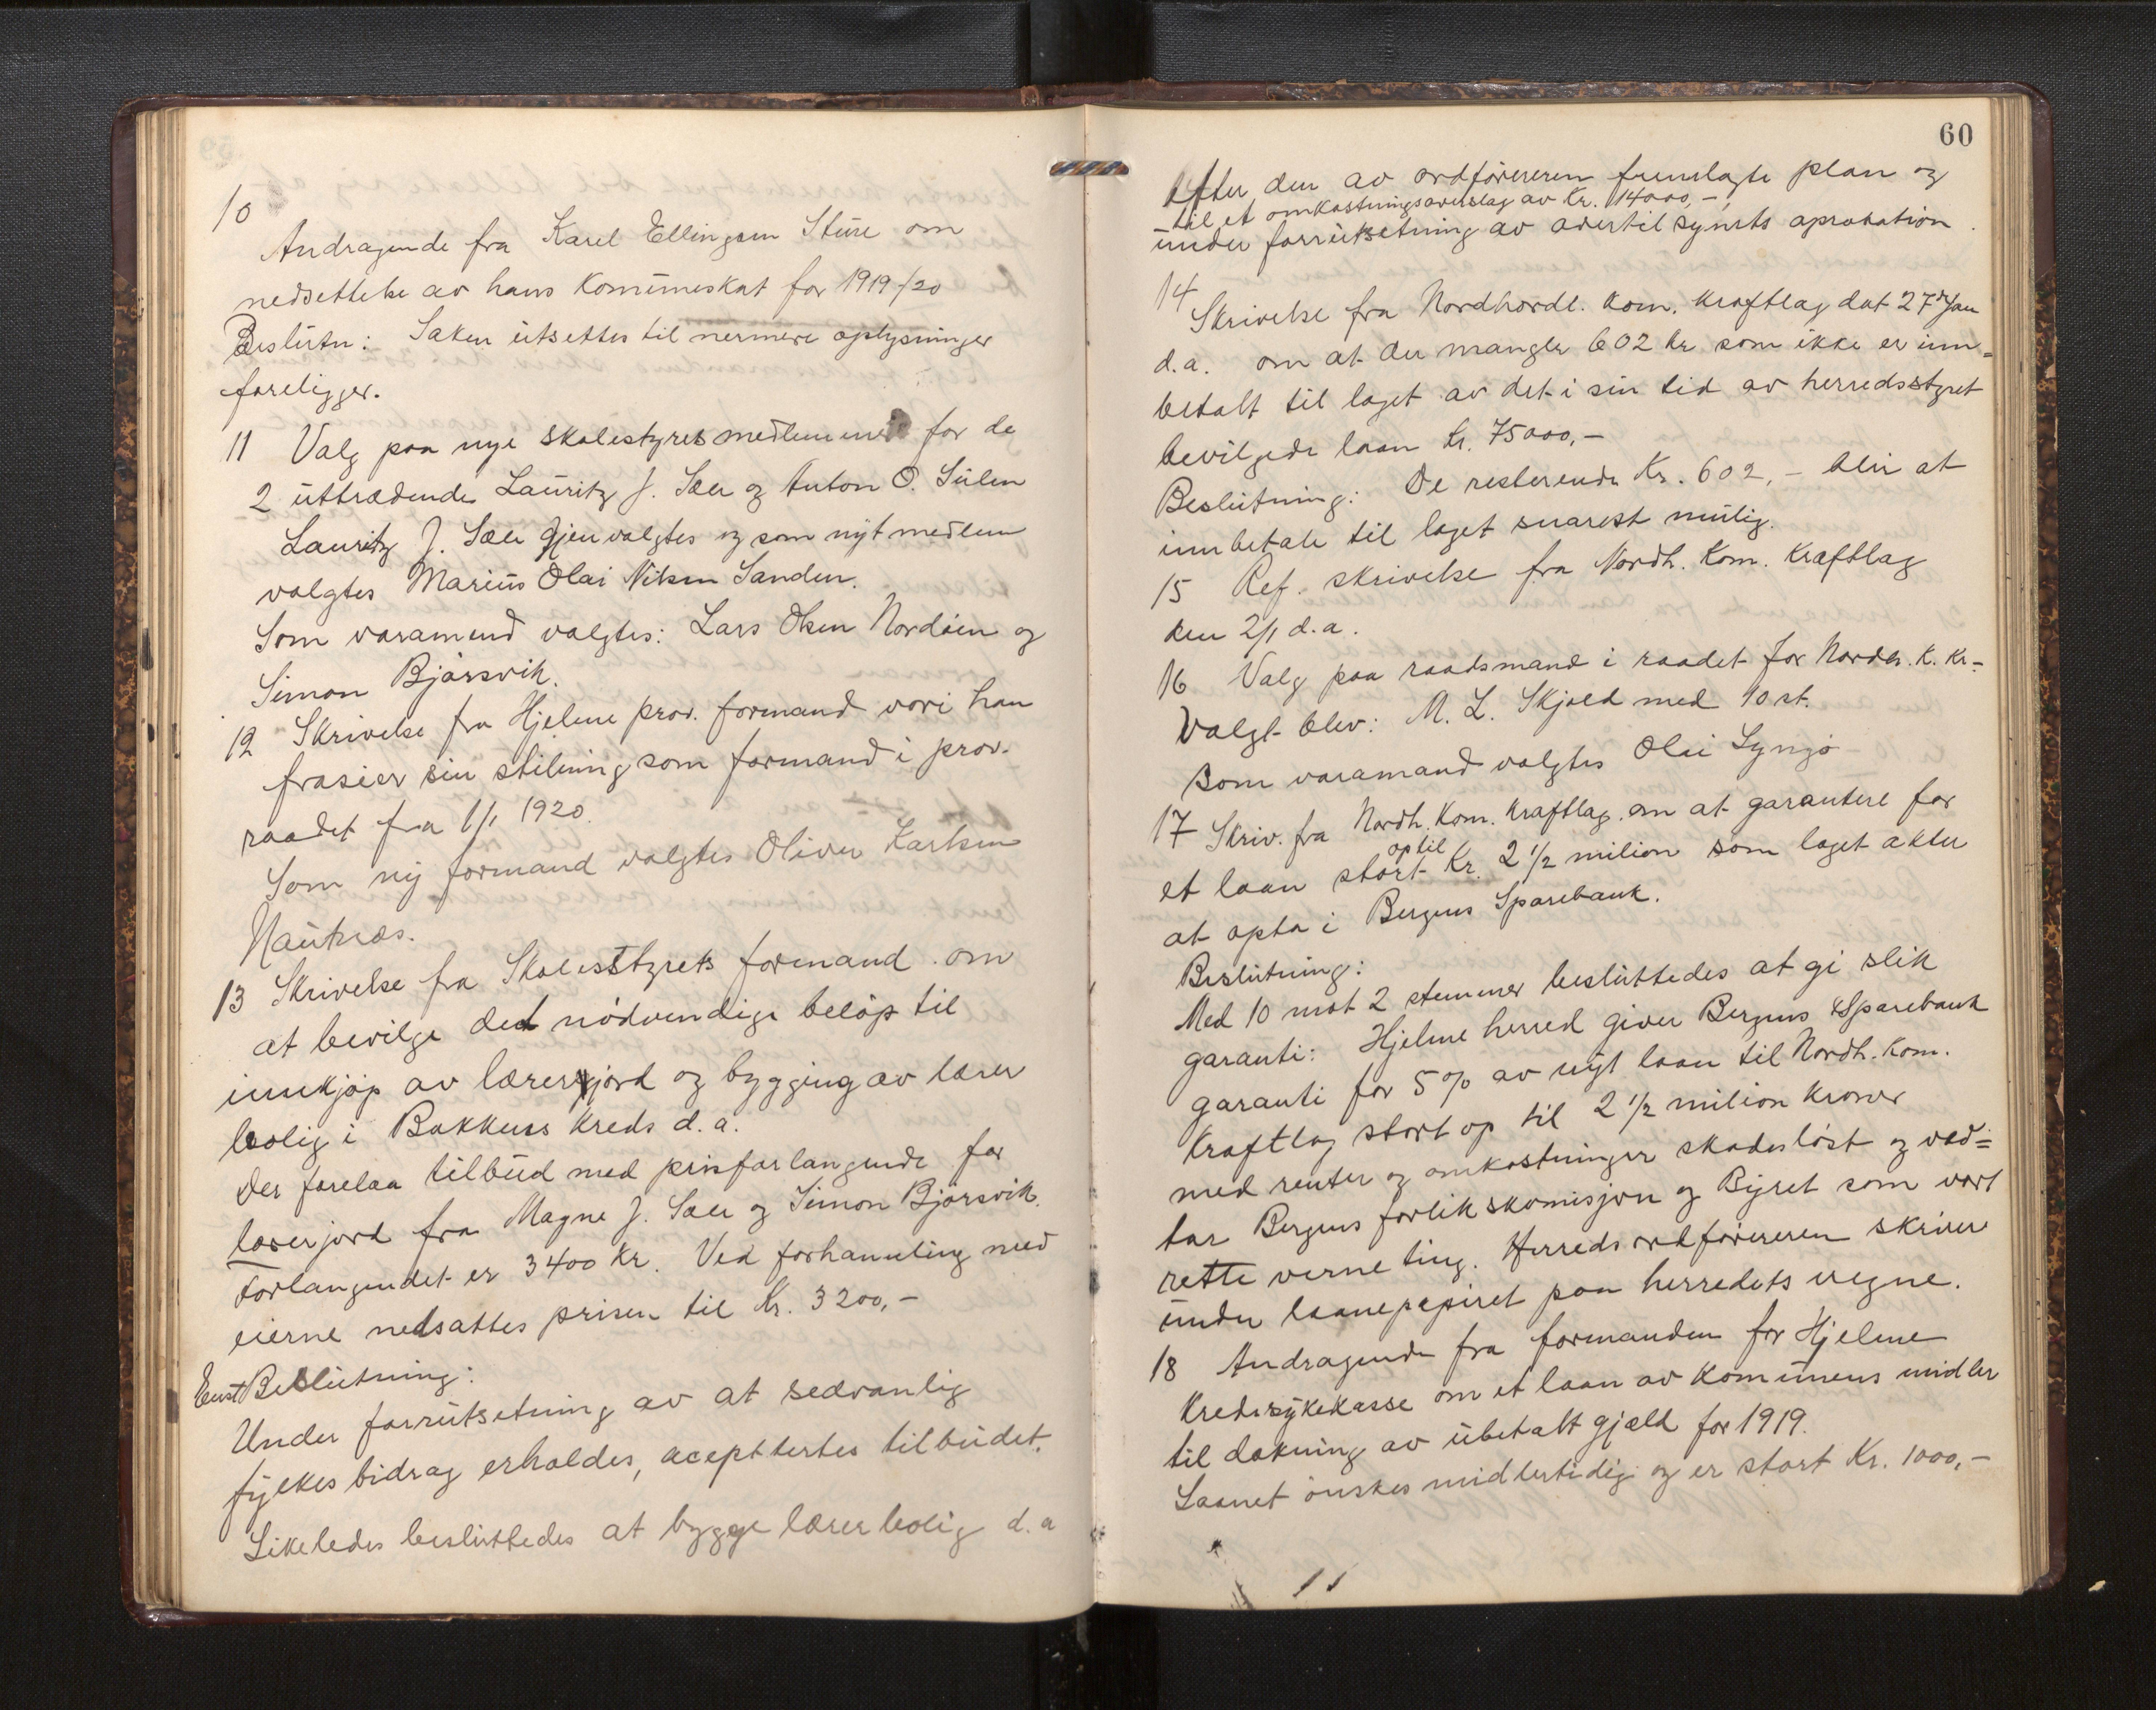 10
Andragende fra Karel Ellingsen Sture om
nedsettelse av hans Komuneskat for 1919/20
Beslutn: Saken utsettes til nermere oplysninger
foreligger.
11 Valg paa nye skolestyresmedlemmer for de
2 uttrædende Lauritz J. Sæle og Anton O. Sulen
Lauritz J. Sæle gjenvalgtes og som nyt medlem
valgtes Marius Olai Nilsen Sanden.
Som varamend valgtes: Lars Olsen Nordöen og
Simon Bjørsvik.
12 Skrivelse fra Hjelme prov. formand vori han
frasier sin stilning som formand i prov.
raadet fra 1/1 1920.
Som ny formand valgtes Oliver Larsen
Nautnes.
13 Skrivelse fra Skolesstyrets formand om
at bevilge det nödvendige beløp til
innkjöp av lærerjord og bygging av lærer
bolig i Bakkens Kreds d. a.
Der forelaa tilbud med prisforlangende for
lærerjord fra Magne J. Sæle og Simon Bjørsvik.
Forlangendet er 3400 Kr. Ved forhanling med
eierne nedsattes prisen til Kr. 3200,-
Enst Beslutning:
Under forrutsetning av at sedvanlig
fylkesbidrag erholdes, acepttertes tilbudet.
Likeledes besluttedes at bygge lærerbolig d. a
60
Efter den av ordförereren fremlagte plan og
til et omkostningsoverslag av Kr. 14000,-
under forrutsetning av overtilsynets aprobation.
14
Skrivelse fra Nordhordl. Kom. Kraftlag dat 27d Jan
d.a. om at der mangler 602 kr som ikke er inn=
betalt til laget av det i sin tid av herredsstyret
bevilgede laan Kr. 75000,-
Beslutning: De resterende Kr. 602,- blir at
innbetale til laget snarest mulig.
15 Ref. skrivelse fra Nordh. Kom. Kraftlag
den 2/1 d.a.
16 Valg paa raadsmand i raadet for Nordh. K. Kr-
Valgt blev: M. L. Skjold med 10 st.
Som varamand valgtes Olai Lyngö
17 Skriv. fra Nordh. Kom. Kraftlag. om at garantere for
optil
et laan stort Kr. 2 1/2 milion som laget akter
at opta i Bergens Sparebank.
Beslutning:
Med 10 mot 2 stemmer besluttedes at gi slik
garanti: Hjelme herred giver Bergens Sparebank
garanti for 5% av nyt laan til Nordh. Kom.
Kraftlag stort op til 2 1/2 milion kroner
med renter og omkostninger skadesløst og ved=
tar Bergens forlikskomisjon og Byret som vort
rette verneting. Herredsordförereren skriver
under laanepapiret paa herredets vegne.
18 Andragende fra formanden for Hjelme
Kredssykekasse om et laan av Komunens midler
til dækning av ubetalt gjæld for 1919.
Laanet önskes midlertidig og er stort Kr. 1000,-